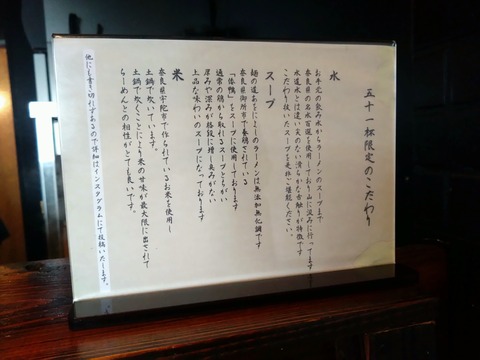 五十一杯限定のこだわり
水
お手元の飲み水からラーメンのスープまで
奈良県の名水百選を使用しており山に汲みに行ってます
水道水とは違い臭のない清らかな舌触りが特徴です
こだわり抜いたスープを是非ご堪能ください。
スープ
麺の道あをによしのラーメンは無添加無化調です
奈良県御所市で養鶏されている
「倭鴨」をスープに使用しております
通常の鶏から取れるスープとちがい
厚みや深みが格段に増し臭みがない
上品な味わいのスープになっております
米
奈良県宇陀市で作られているお米を使用し
土鍋で炊いています。
土鍋で炊くことにより、米の甘味が最大限に出されて
らーめんとの相性がとても良いです。
他にも書き切れずあるので詳細はインスタグラムにて投稿いたします。